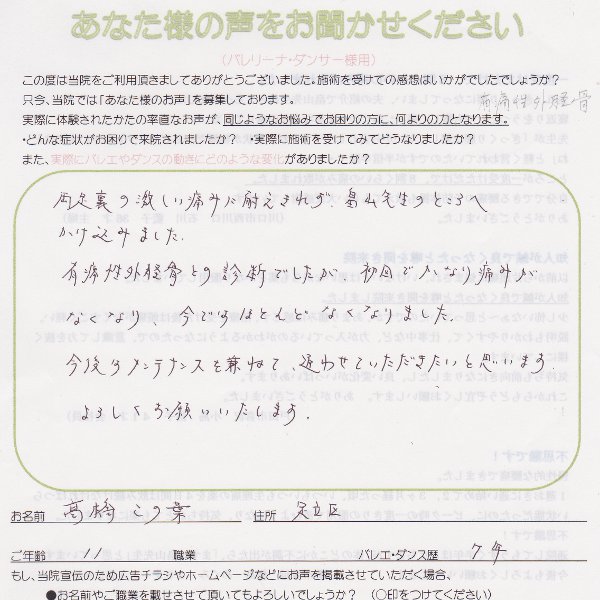 あなた様の声をお聞かせください
(バレリーナ・ダンサー様用)
この度は当院をご利用頂きましてありがとうございました。施術を受けての感想はいかがでしたでしょうか?
只今、当院では「あなた様のお声」を募集しております。
有痛性外脛骨
実際に体験されたかたの率直なお声が、同じようなお悩みでお困りの方に、何よりの力となります。
・どんな症状がお困りで来院されましたか? ・実際に施術を受けてみてどうなりましたか?
また、実際にバレエやダンスの動きにどのような変化がありましたか?
両足裏の激しい痛みに耐えきれず、畠山先生のところへ
かけ込みました。
有痛性外脛骨との診断でしたが、初回でかなり痛みが
なくなり、今ではほとんどなくなりました。
今後もメンテナンスを兼ねて、通わせていただきたいと思います。
よろしくお願いいたします。
お名前 高橋 この葉 住所 足立区
ご年齢 11 職業 バレエ・ダンス歴 7年
もし、当院宣伝のため広告チラシやホームページなどにお声を掲載させていただく場合、
●お名前やご職業を載せさせて頂いてもよろしいでしょうか? (○印をつけてください)